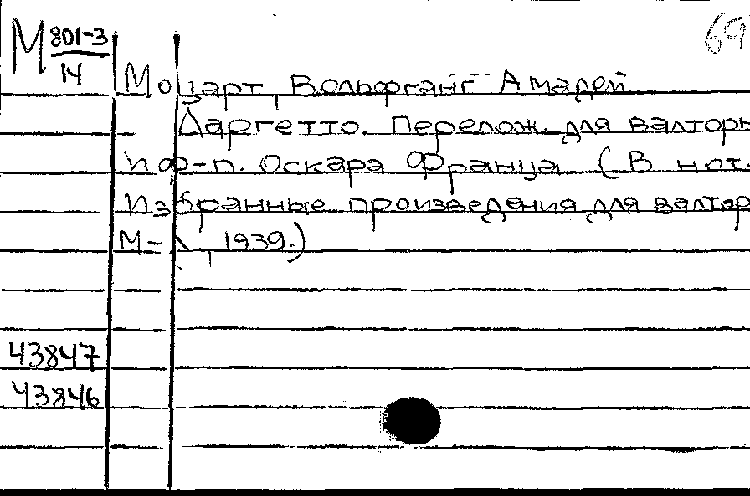 69
М 801-3
14
Моцарт, Вольфганг Амадей
Ларгетто. Перелож. для валторны
и ф-п. Оскара Франца (В нот.
Избранные произведения для валтор
М-Л, 1939.)
43847
43846